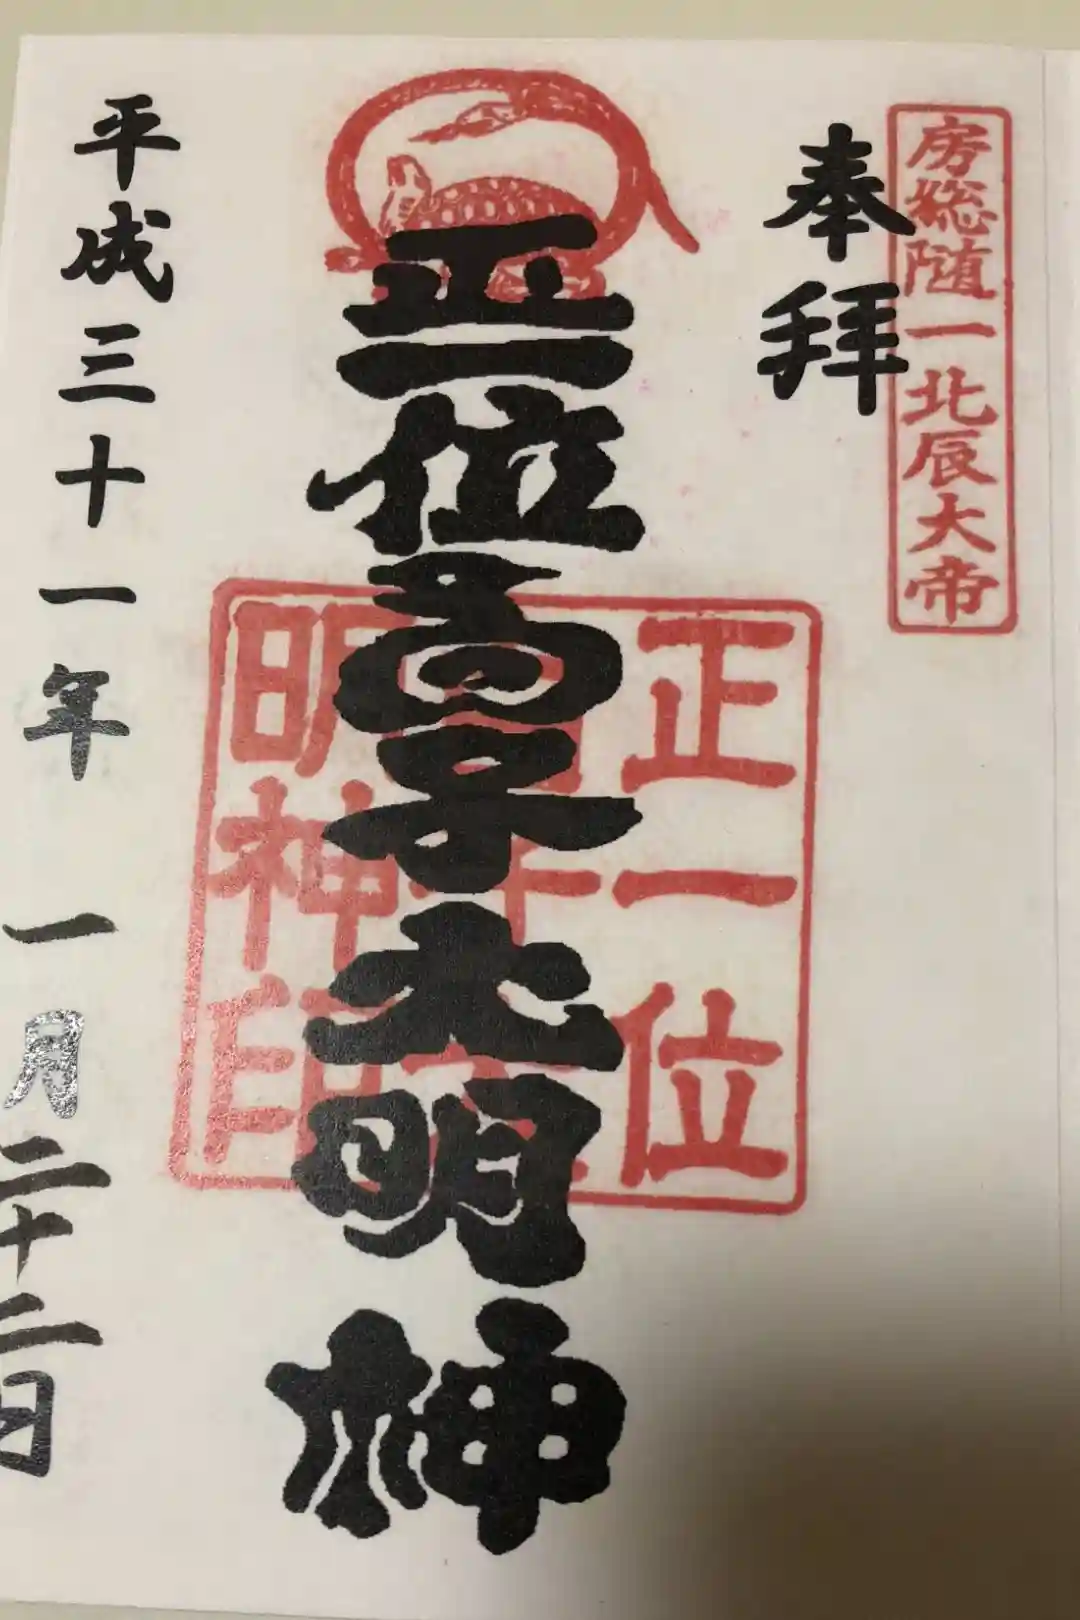 房総随一北辰大帝
奉拝
正一位高子大明神
正一位
高子大
明神印
平成三十一年 一月二十二日